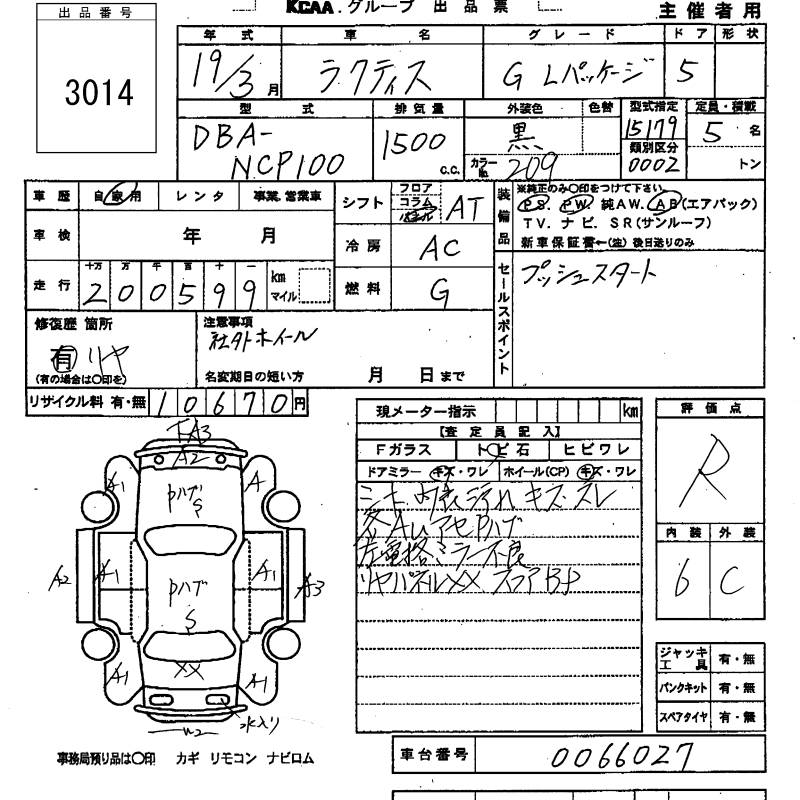 出品番号
3014
KCAA.グループ 出品票
主催者用
年式 車名 グレード ドア 形状
19/3月 ラクティス G Lパッケージ 5
型式 排気量 外装色 色替 型式指定 定員・積載
DBA-NCP100 1500 C.C. 黒 15179 5名
カラーNo. 209 類別区分 0002 トン
車歴 自家用 レンタ 事業.営業車
車検 年 月
走行 十万 万 千 百 十 一
200599 km マイル
シフト フロア コラム AT
冷房 AC
燃料 G
装備品
※純正のみ〇印をつけて下さい
PS. PW. 純AW. AB(エアバック)
TV. ナビ. SR(サンルーフ)
新車保証書←(注) 後日送りのみ
セールスポイント
プッシュスタート
修復歴 箇所
有 リヤ
(有の場合は〇印を)
注意事項
社外ホイール
名変期日の短い方 月 日まで
リサイクル料 有・無 10670円
現メーター指示 km
【査定員記入】
Fガラス トビ石 ヒビワレ
ドアミラー キズ・ワレ ホイール(CP) キズ・ワレ
シート 内張 汚れ キズ スレ
各AU アセPハゲ
左電格ミラー不良
リヤパネルXX スコアBP
評価点
R
内装 外装
6 C
ジャッキ工具 有・無
パンクキット 有・無
スペアタイヤ 有・無
TA3
A2
A1
Pハゲ
S
A
A2
A1
A1
A3
Pハゲ
S
A1
XX
A1
水入り
W2
事務局預り品は〇印 カギ リモコン ナビロム
車台番号 0066027